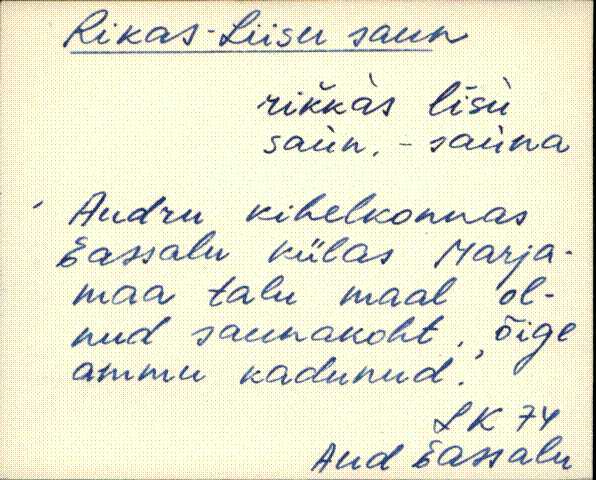 Rikas-Liisu saun
rikkàs līsù
saùn, - saùna
Audru kihelkonnas
Eassalu külas Marja-
maa talu maal ol-
nud saunakoht, õige
ammu kadunud.
LK 74
Aud Eassalu